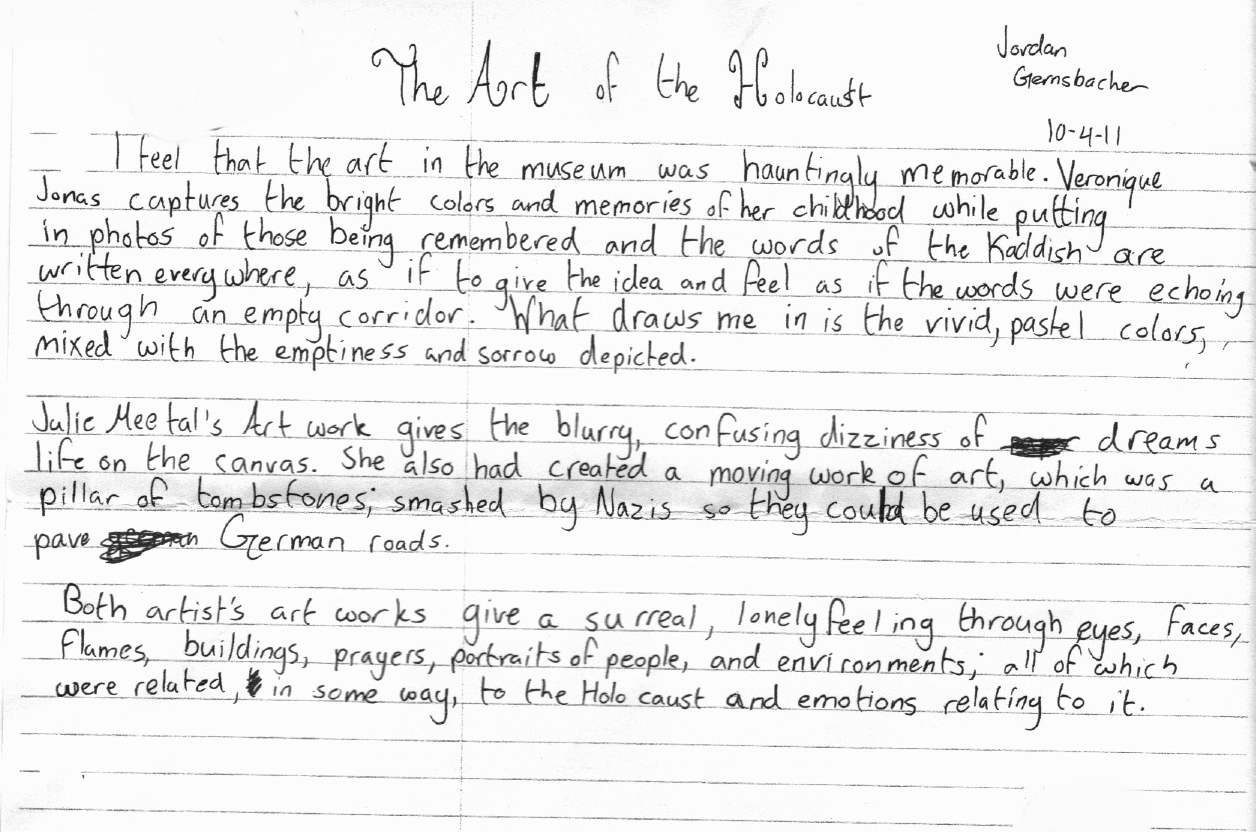 The Art of the Holocaust
Jordan
Gernsbacher
10-4-11
I feel that the art in the museum was hauntingly memorable. Veronique
Jonas captures the bright colors and memories of her childhood while putting
in photos of those being remembered and the words of the Kaddish are
written everywhere, as if to give the idea and feel as if the words were echoing
through an empty corridor. What draws me in is the vivid, pastel colors,
mixed with the emptiness and sorrow depicted.
Julie Meetal's Art work gives the blurry, confusing dizziness of dreams
life on the canvas. She also had created a moving work of art, which was a
pillar of tombstones; smashed by Nazis so they could be used to
pave German roads.
Both artist's art works give a surreal, lonely feeling through eyes, faces,
flames, buildings, prayers, portraits of people, and environments; all of which
were related, in some way, to the Holocaust and emotions relating to it.